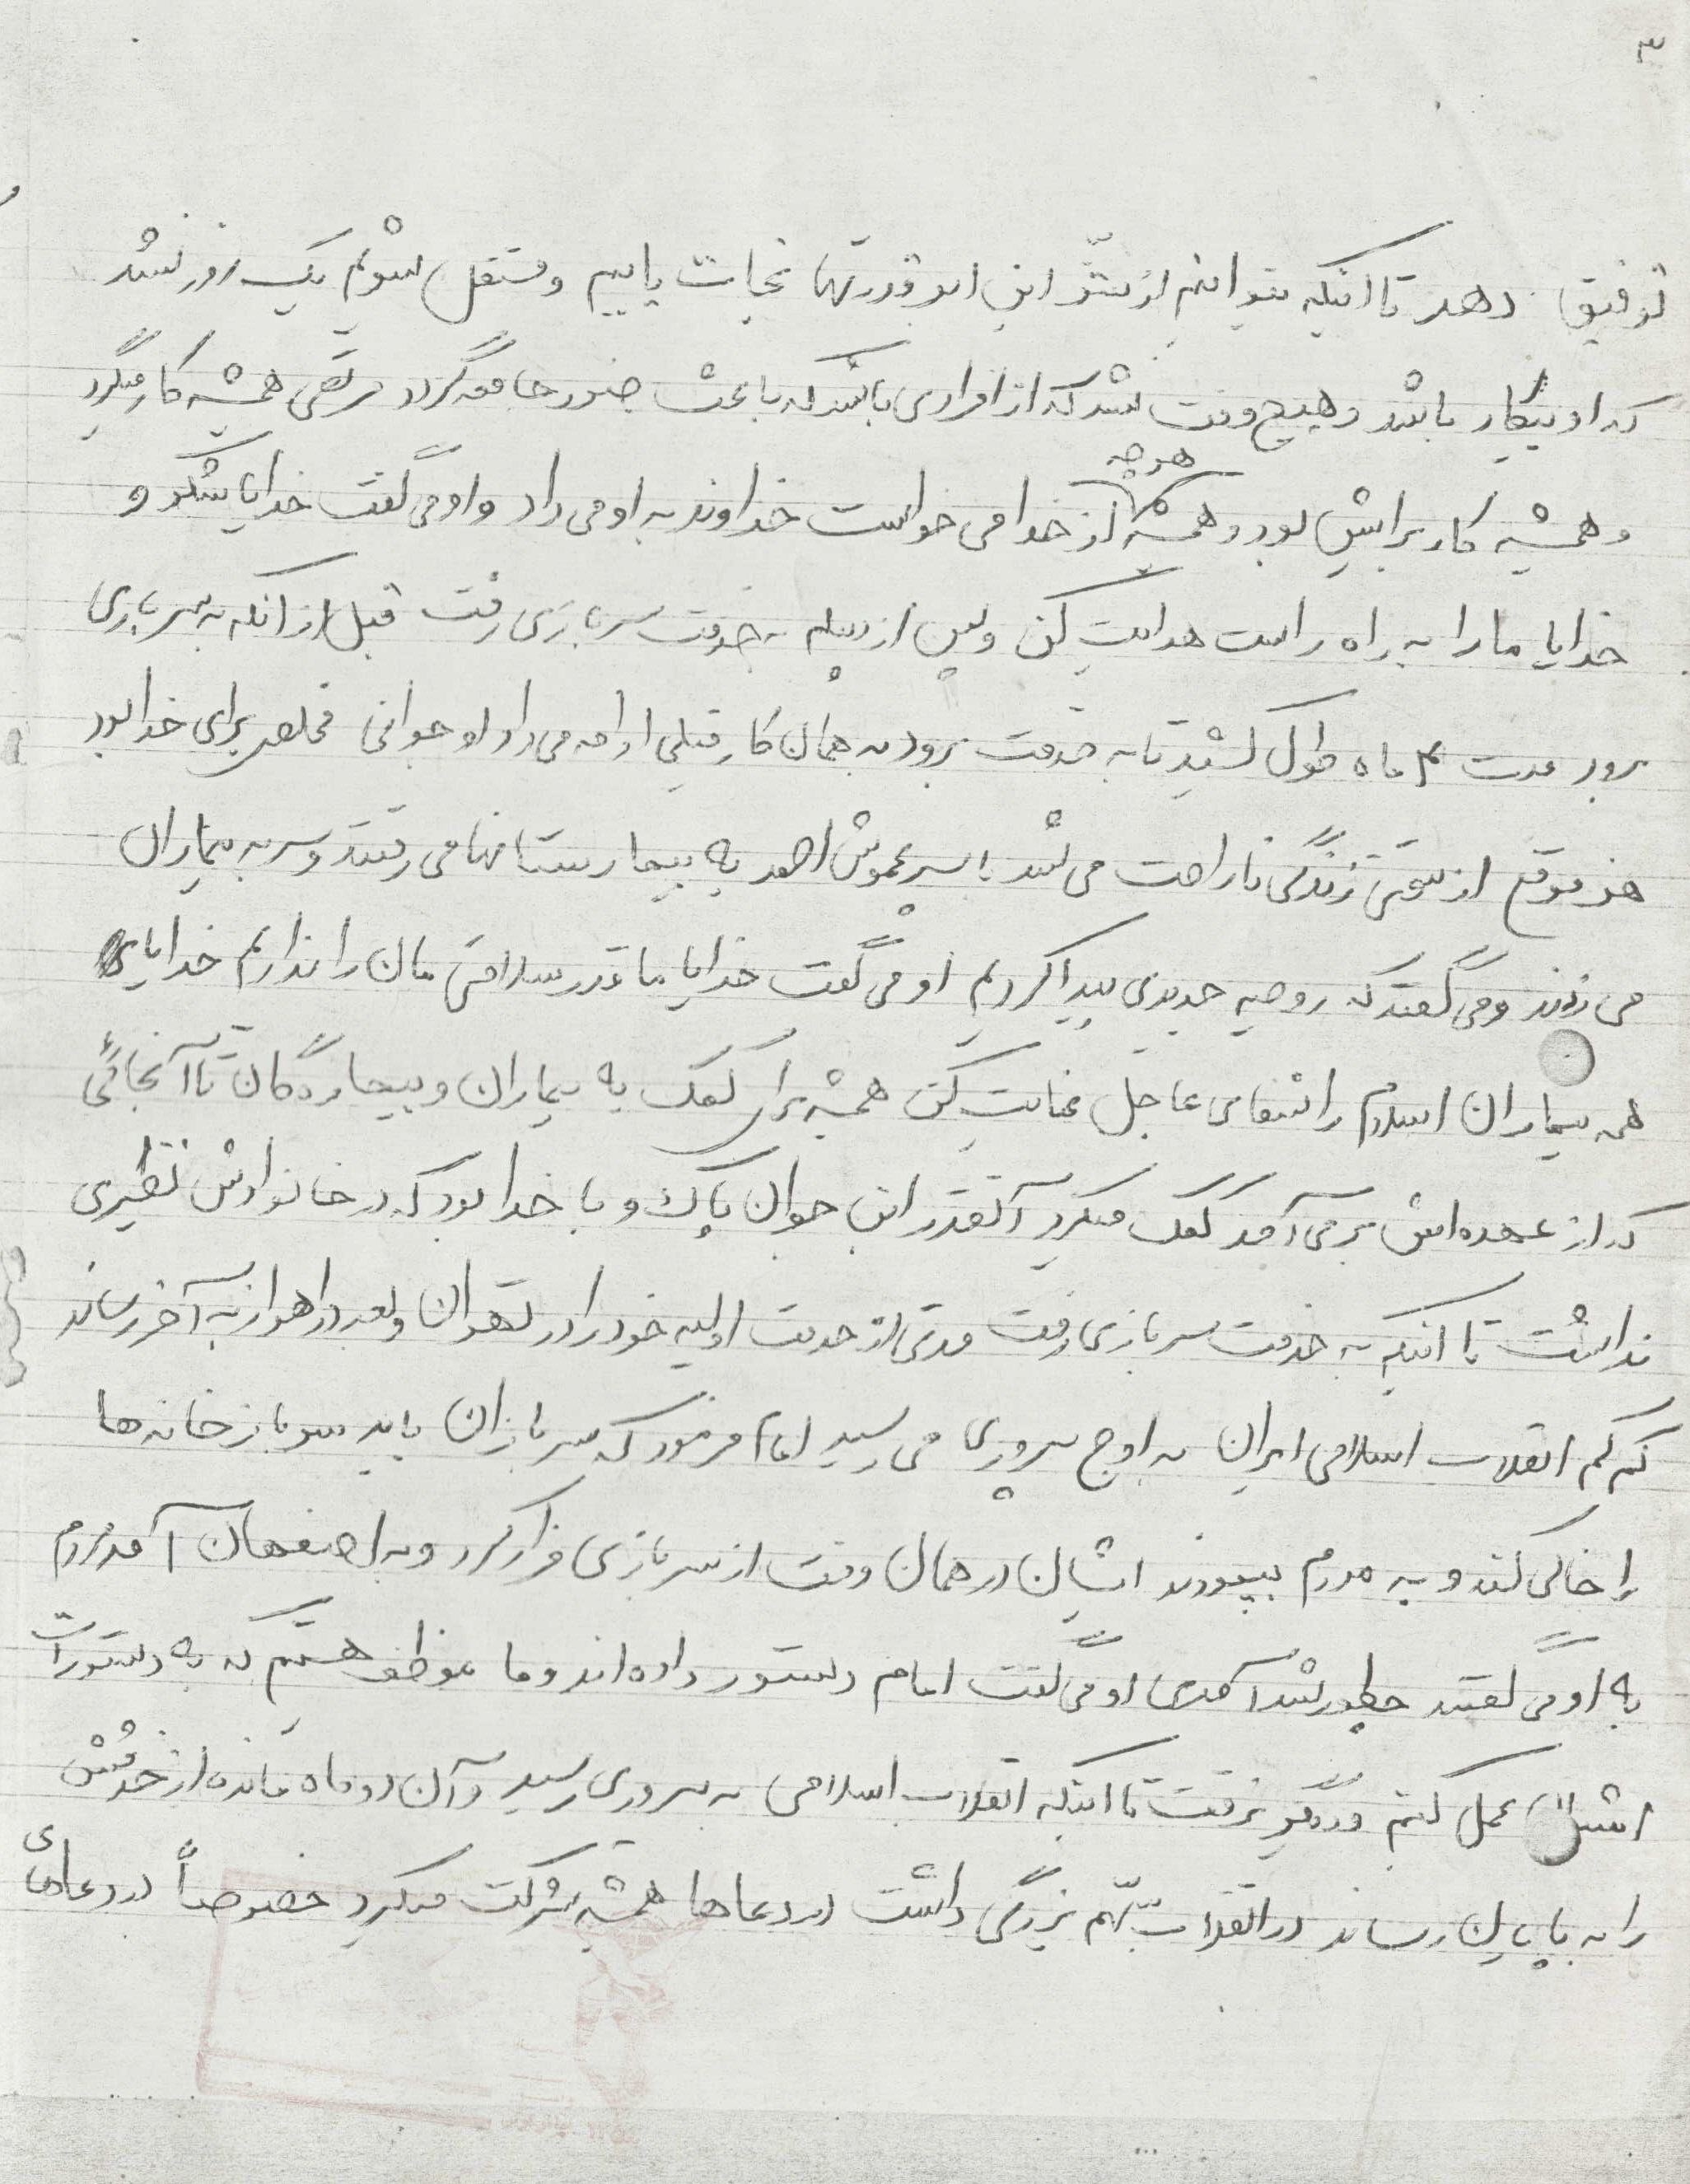 ۳
توفیق دهد تا اینکه بتوانیم از شرّ این ابرقدرتها نجات یابیم و مستقل شویم یک روز نشد
که او بیکار باشد و هیچ وقت نشد که از افرادی باشد که باعث ضرر جامعه گردد مرتضی همیشه کار میکرد
هرچه
و همیشه کار برایش بود و همیشه از خدا می خواست خداوند به او می داد و او می گفت خدایا شکر و
خدایا ما را به راه راست هدایت کن و پس از دیپلم به خدمت سربازی رفت قبل از آنکه به سربازی
برود مدت ۴ ماه طول کشید تا به خدمت برود به همان کار قبلی ادامه می داد او جوانی مخلص برای خدا بود
هر موقع از سختی زندگی ناراحت می شد با پسر عمویش احمد به بیمارستانها می رفتند و سر به بیماران
می زدند و می گفتند که روحیه جدیدی پیدا کردیم او می گفت خدایا ما قدر سلامتی مان را نداریم خدایا
همه بیماران اسلام را شفای عاجل عنایت کن همیشه برای کمک به بیماران و بیچارگان تا آنجائی
که از عهده اش بر می آمد کمک میکرد آنقدر این جوان پاک و با خدا بود که در خانوادش نظیری
نداشت تا اینکه به خدمت سربازی رفت مدتی از خدمت اولیه خود را در تهران و بعد در اهواز به آخر رساند
کم کم انقلاب اسلامی ایران به اوج پیروزی می رسید امام فرمود که سربازان باید سربازخانه ها
را خالی کنند و به مردم بپیوندند ایشان در همان وقت از سربازی فرار کرد و به اصفهان آمد مردم
به او می گفتند چطور شد آمدی او می گفت امام دستور داده اند و ما موظف هستیم که به دستورات
ایشان عمل کنیم و دیگر نرفت تا اینکه انقلاب اسلامی به پیروزی رسید و آن دو ماه مانده از خدمتش
را به پایان رساند در انقلاب سهم بزرگی داشت در دعاها همیشه شرکت میکرد خصوصاً در دعاهای